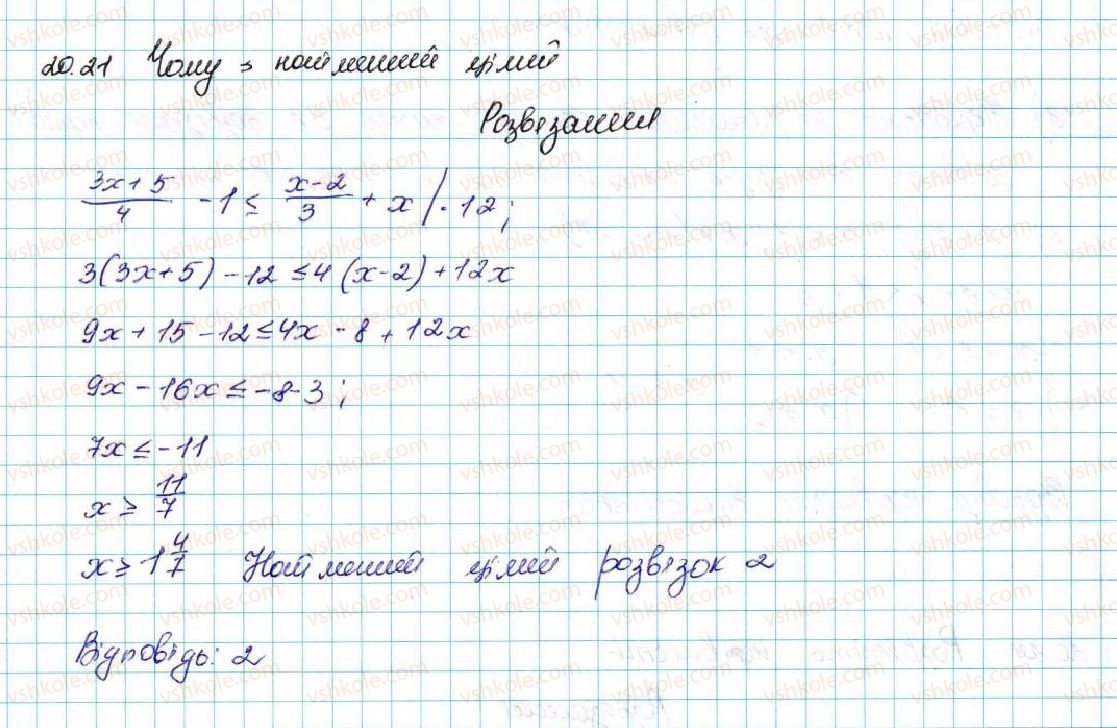 20.21 Чому з найменший цілий
Розв'язання
(3x+5)/4 - 1 ≤ (x-2)/3 + x /· 12;
3(3x+5) - 12 ≤ 4(x-2) + 12x
9x + 15 - 12 ≤ 4x - 8 + 12x
9x - 16x ≤ -8-3;
7x ≤ -11
x ≥ 11/7
x ≥ 1 4/7 Найменший цілий розв'язок 2
Відповідь: 2